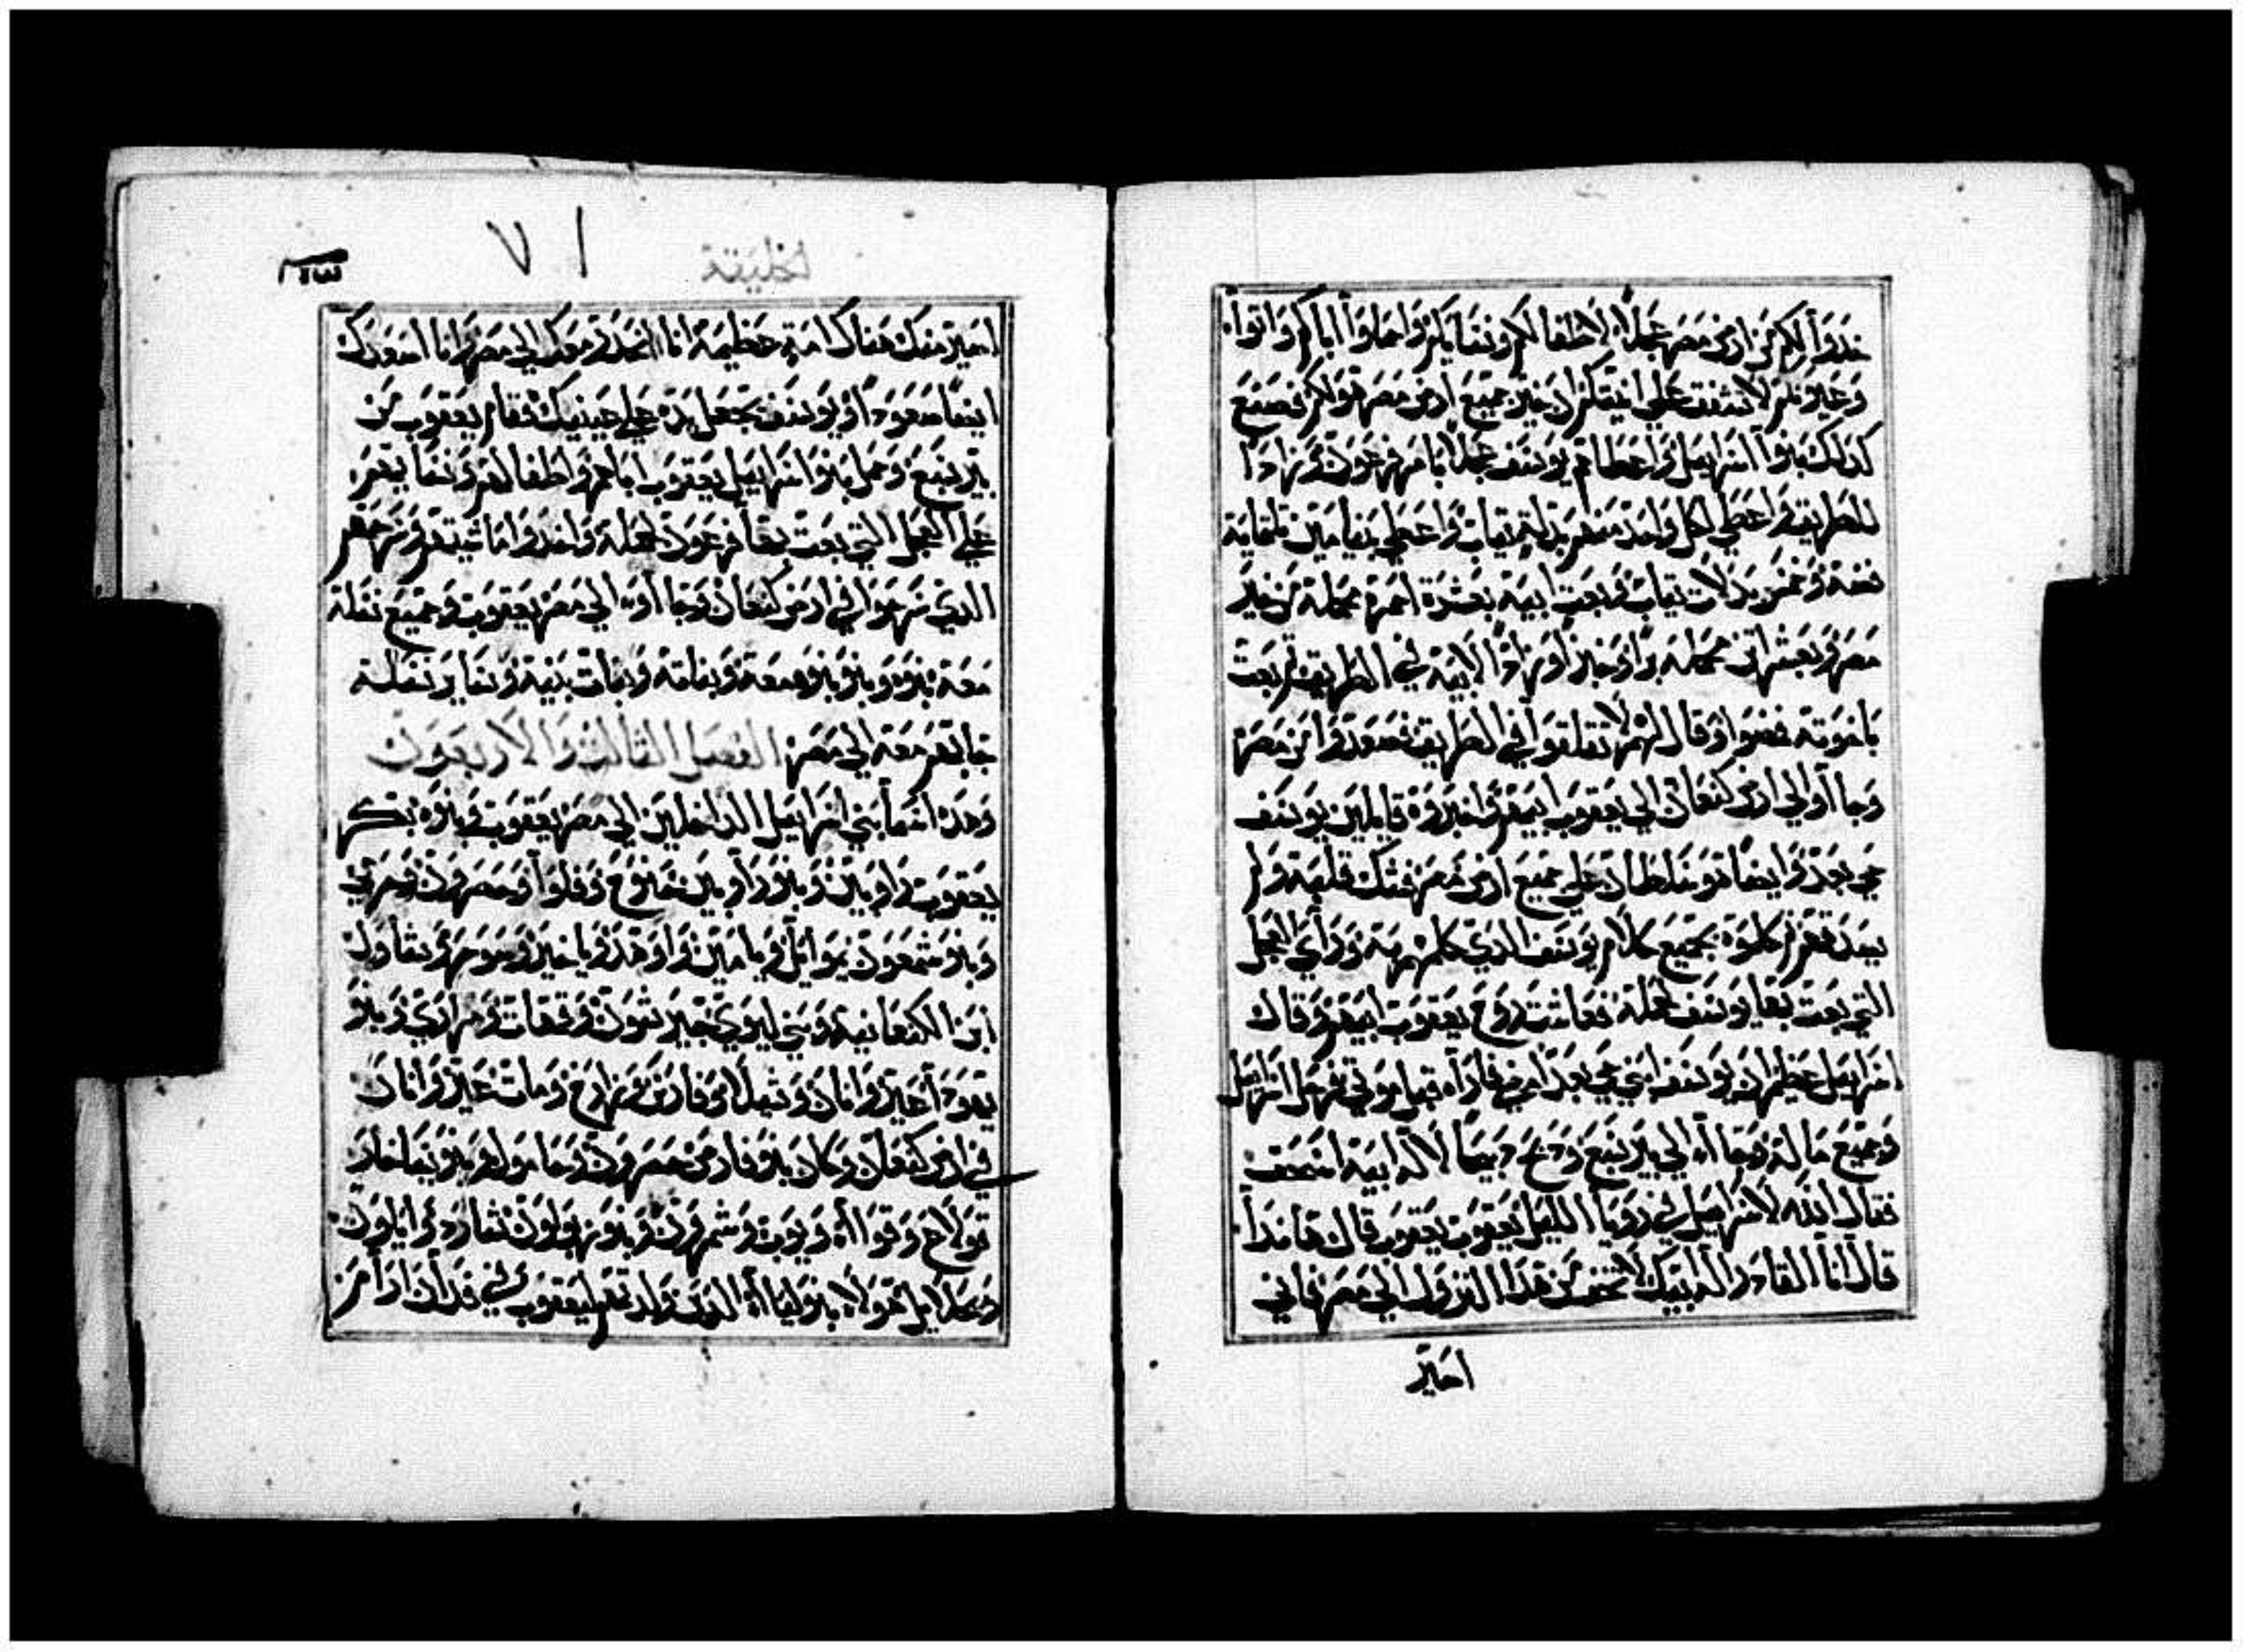 خدوا لكم من ارض مصر عجلاً لاطفالكم ونسايكم واحملوا اباكم واتوا
وعينكم لا تشفق علي انيتكم لان خير جميع ارض مصر هو لكم فصنع
كدلك بنوا اسراييل واعطاهم يوسف عجلاً بامر فرعون وزاداً
للطريق واعطي لكل واحد منهم بدلة تياب واعطي بنيامين تلتماية
فضة وخمس بدلات تياب وبعت ابيه بعشرة احمرة محملة من خير
مصر وبعشر اتن محملة براً وخبز وزاداً لابيه في الطريق تم بعت
باخوته فمضوا وقال لهم لا تقلقوا في الطريق فصعدوا من مصر
وجااو الي ارض كنعان الي يعقوب ابيهم واخبروه قايلين يوسف
حي بعد وايضاً هو سلطان علي جميع ارض مصر فشك قلبه ولم
يصدقهم تم كلموه بجميع كلام يوسف الدي كلمهم به وراي العجل
التي بعت بها يوسف لحمله فعاشت روح يعقوب ابيهم وقال
اسراييل عظيم ان يوسف ابني حي بعد امضي فاراه قبل موتي فرحل اسراييل
وجميع ماله وجااه الي بير سبع ودبح دبيحاً لاله ابيه اسحق
فقال الله لاسراييل في رويا الليل يعقوب يعقوب قال هاندا
قال انا القادر اله ابيك لا تخف من هدا النزول الي مصر فاني
اصير
لخليقة
٧١
اصير منك هناك امة عظيمة انا انحدر معك الي مصر وانا اصعدك
ايضاً صعوداً ويوسف يجعل يده علي عينيك فقام يعقوب من
بير سبع وحمل بنوا اسراييل يعقوب اباهم واطفالهم ونسايهم
علي العجل التي بعت بها فرعون لحمله واخدوا ماشيتهم وسرحهم
الدي سرحوا في ارض كنعان وجااو الي مصر يعقوب وجميع نسله
معه بنوه وبنو بنوه معه وبناته وبنات بنيه وساير نسله
جابهم معه الي مصر الفصل التالت والاربعون
وهده اسما بني اسراييل الداخلين الي مصر يعقوب وبنوه بكر
يعقوب راوبين وبنو راوبين خنوخ وفلوا وحصرون وكرمي
وبنو شمعون يموايل ويامين واوهد وياخين وصوحر وشاول
ابن الكنعانية وبني ليوي جيرشون وقهات ومراري وبنو
يهودا عير وانان وشيلا وفارص وزارح ومات عير وانان
في ارض كنعان وكان بنو فارص حصرون وحامول وبنو يساخار
تولاع وفوااه ويوب وشمرون وبنو زبولون سارد وايلون
ويحلاييل هولا بنو ليااه الدين ولدتهم ليعقوب في فدان ارام